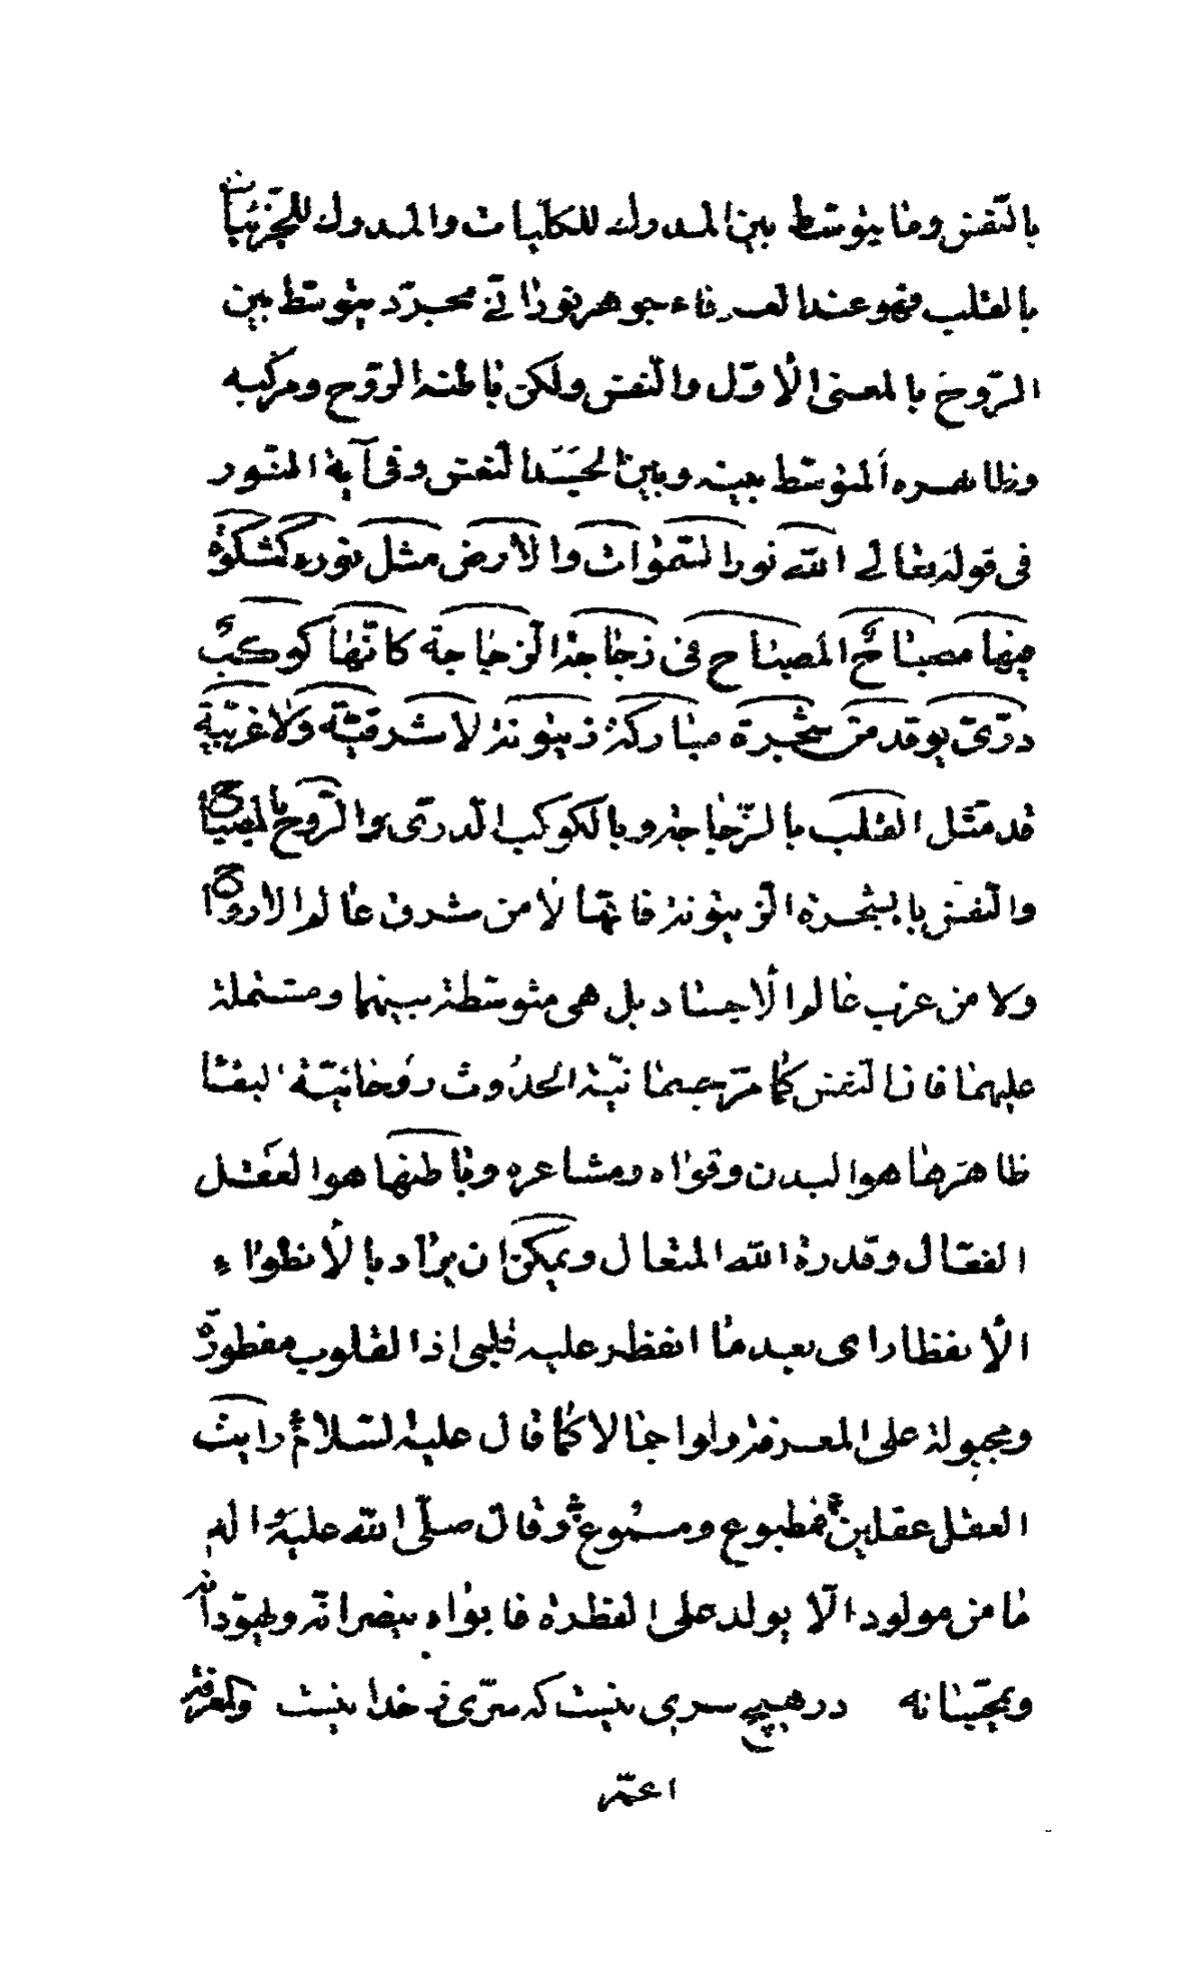 بالنّفس وما يتوسّط بين المدرك للكلّيات والمدرك للجزئيات
بالقلب فهو عند العرفاء جوهر نورانّى مجرّد يتوسّط بين
الرّوح بالمعنى الأوّل والنّفس ولكن باطنه الرّوح ومركبه
وظاهره المتوسّط بينه وبين الجسد النّفس وفى آية النّور
فى قوله تعالى الله نور السّموات والأرض مثل نوره كمشكوة
فيها مصباحٌ المصباح فى زجاجة الزّجاجة كانّها كوكبٌ
درّىّ يوقد من شجرة مباركة زيتونة لا شرقيّة ولا غربيّة
قد مثّل القلب بالزّجاجة وبالكوكب الدرّى والرّوح بالمصباح
والنّفس بالشّجرة الزّيتونة فانّها لا من شرق عالم الارواح
ولا من غرب عالم الأجساد بل هى متوسّطة بينهما ومشتملة
عليهما فانّ النّفس كما مرّ جسمانيّة الحدُوث روحانيّة البقا
ظاهرها هو البدن وقواه ومشاعره وباطنها هو العقل
الفعّال وقدرة الله المتعال ويمكن ان يراد بالأنطواء
الأنفطار اى بعد ما انفطر عليه قلبى اذ القلوب مفطورةٌ
ومجبولة على المعرفة ولو اجمالا كما قال عليه السّلام رايت
العقل عقلين فمطبوع ومسموع وقال صلّى الله عليه واله
ما من مولود الّا يولد على الفطرة فابواه ينصّرانه ويهوّدانه
ويمجّسانه در هيچ سرى نيست كه سرّى ز خدا نيست والمعرفة
اعمّ